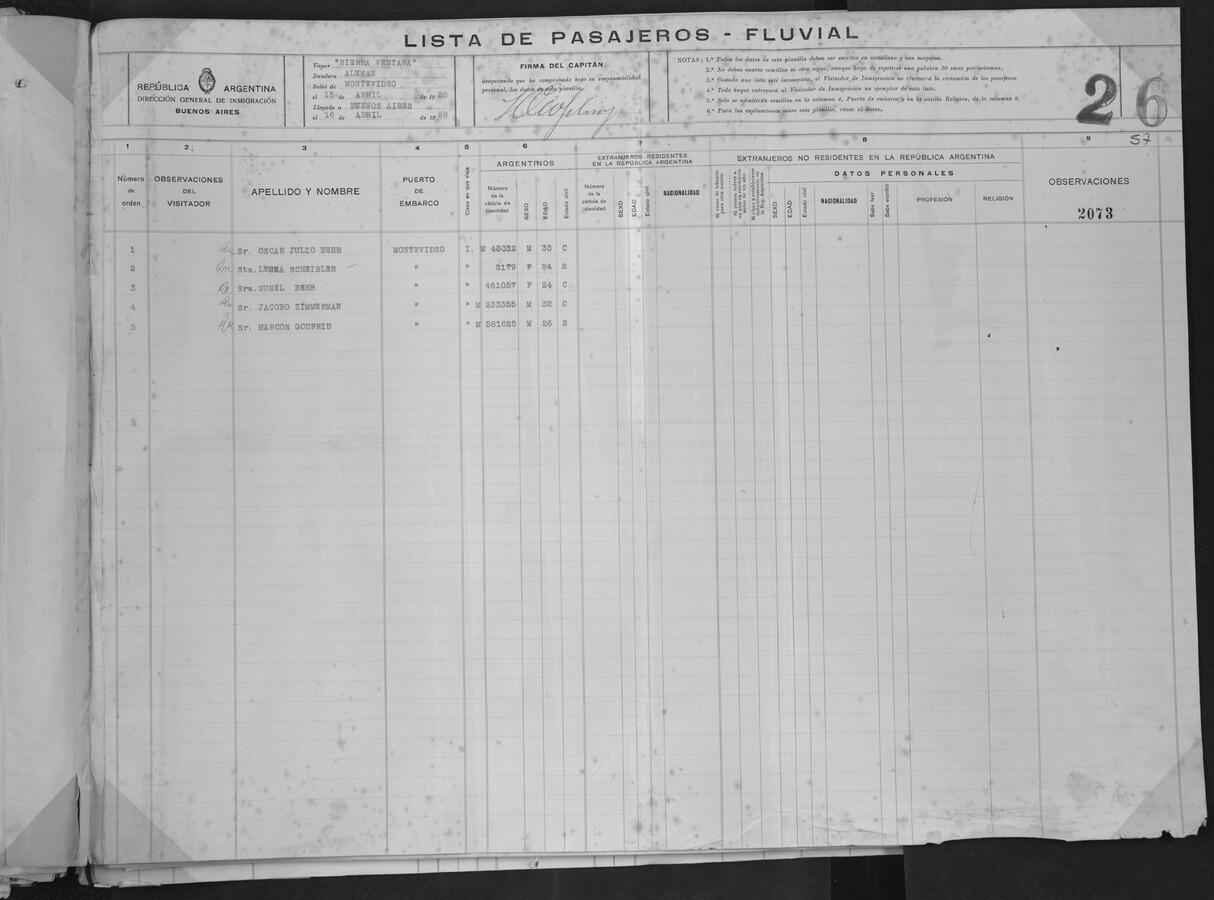 LISTA DE PASAJEROS - FLUVIAL
REPÚBLICA ARGENTINA
DIRECCIÓN GENERAL DE INMIGRACIÓN
BUENOS AIRES
Vapor "SIERRA VENTANA"
Bandera ALEMAN
Salió de MONTEVIDEO
el 15 de ABRIL de 1928
Llegado a BUENOS AIRES
el 16 de ABRIL de 1928
FIRMA DEL CAPITÁN
asegurando que ha comprobado bajo su responsabilidad
personal, los datos de esta planilla.
NOTAS: 1.ª Todos los datos de esta planilla deben ser escritos en castellano y con máquina.
2.ª No deben usarse comillas ni otro signo, aunque haya de repetirse una palabra 50 veces por columna.
3.ª Cuando una lista esté incompleta, el Visitador de Inmigración no efectuará la revisación de los pasajeros.
4.ª Todo buque entregará al Visitador de Inmigración un ejemplar de esta lista.
5.ª Sólo se admitirán comillas en la columna 4, Puerto de embarco y en la casilla Religión, de la columna 8.
6.ª Para las explicaciones sobre esta planilla, véase al dorso.
26
57
1 2 3 4 5 6 7 8 9
Número de orden
OBSERVACIONES DEL VISITADOR
APELLIDO Y NOMBRE
PUERTO DE EMBARCO
Clase en que viaja
ARGENTINOS
Número de la cédula de identidad
SEXO
EDAD
Estado civil
EXTRANJEROS RESIDENTES EN LA REPÚBLICA ARGENTINA
Número de la cédula de identidad
SEXO
EDAD
Estado civil
NACIONALIDAD
EXTRANJEROS NO RESIDENTES EN LA REPÚBLICA ARGENTINA
DATOS PERSONALES
SEXO
EDAD
Estado civil
NACIONALIDAD
Sabe leer
Sabe escribir
PROFESIÓN
RELIGIÓN
OBSERVACIONES
2073
1 Sr. OSCAR JULIO BEHR MONTEVIDEO I. M 43032 M 33 C
2 Sta. SCHEIBLER " " 2179 F 24 S
3 Sra. SUSEL BEHR " " 461057 F 24 C
4 Sr. JACOBO ZIMMERMAN " " M 233355 M 32 C
5 Sr. MARCOS GODFRID " " M 581625 M 26 S